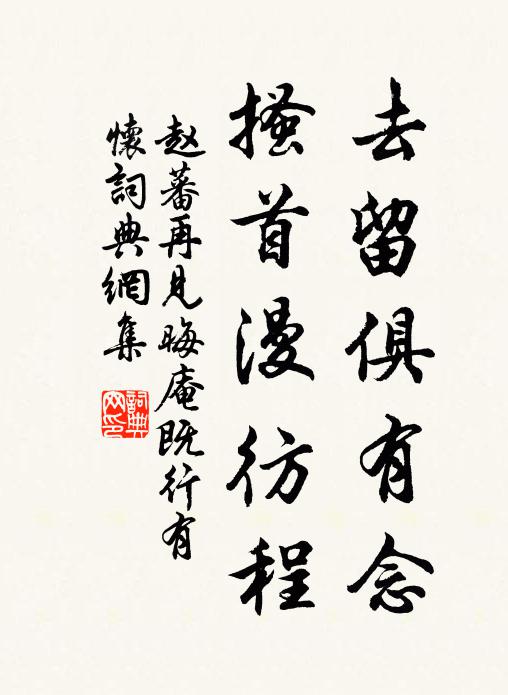 去留俱有念
搔首漫彷程
赵蕃再见晦庵既行有
懷詞典網集
詞典网印